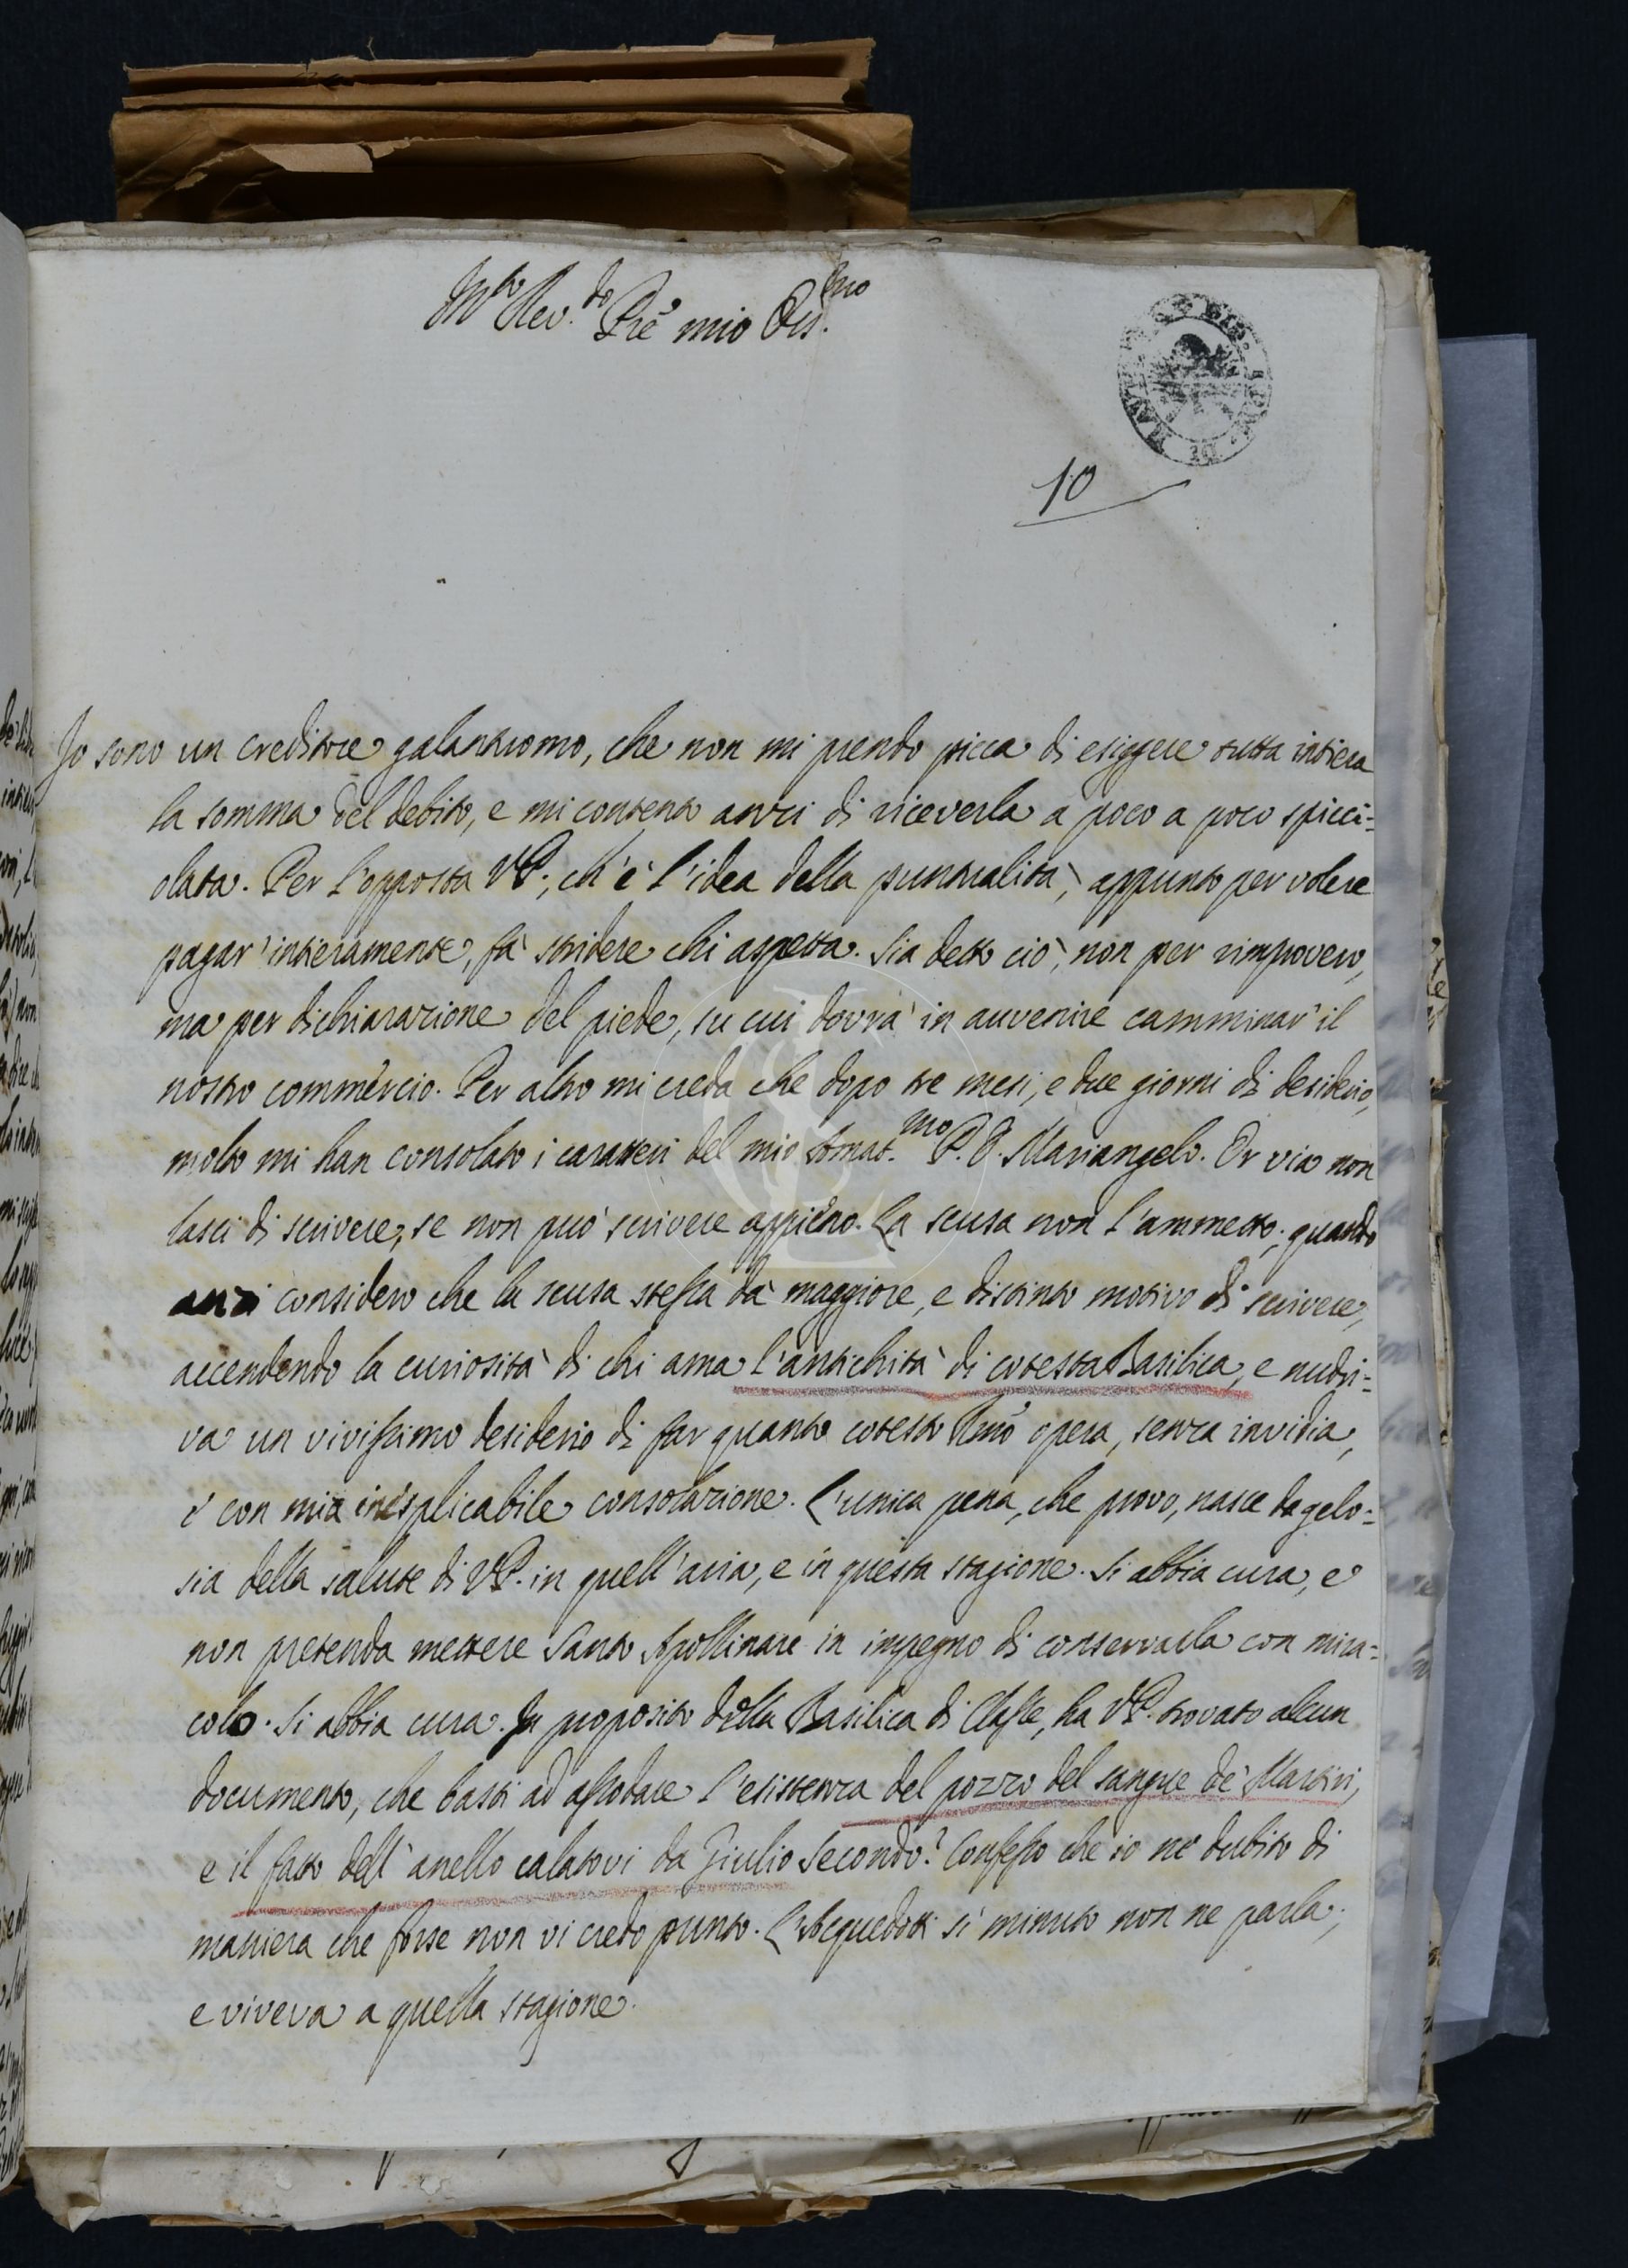 M.to Rev.do Pre mio Oss.mo
10
Io sono un creditore galantuomo, che non mi prendo picca di esiggere tutta intiera
la somma del debito, e mi contento anzi di riceverla a poco a poco spicci=
olata. Per l'opposta VP., ch'è l'idea della puntualità, appunto per volere
pagar'intieramente, fà stridere chi aspetta. Sia detto ciò, non per rimprovero,
ma per dichiarazione del piede, su cui dovrà in avvenire camminar'il
nostro commercio. Per altro mi creda che dopo tre mesi, e due giorni di desiderio,
molto mi han consolato i caratteri del mio Amat.mo P. D. Mariangelo. Or via non
lasci di scrivere, se non può scrivere appieno. La scusa non l'ammetto; quando
anzi considero che la scusa stessa dà maggiore, e distinto motivo di scrivere,
accendendo la curiosità di chi ama l'antichità di cotesta Basilica, e nudri=
va un vivissimo desiderio di far quanto cotesto Rmo opera, senza invidia,
e con mia inesplicabile consolazione. L'unica pena, che provo, nasce da gelo=
sia della salute di VP. in quell'aria, e in questa stagione. Si abbia cura, e
non pretenda mettere Santo Apollinare in impegno di conservarla con mira=
colo. Si abbia cura. In proposito della Basilica di Classe, ha VP. trovato alcun
documento, che basti ad assodare l'esistenza del pozzo del sangue de' Martiri,
e il fatto dell'anello calatovi da Giulio Secondo? Confesso che io ne dubito di
maniera che forse non vi credo punto. L'Acquedotti sì minuto non ne parla;
e viveva a quella stagione.